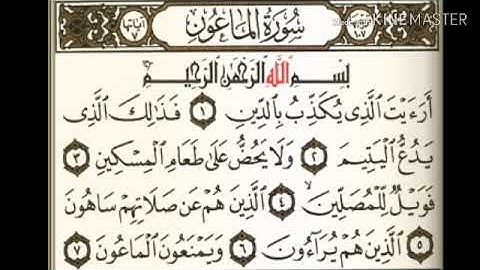 سُورَةُ الْمَاعُونِ
Made with KINEMASTER
بِسْمِ اللَّهِ الرَّحْمَٰنِ الرَّحِيمِ
أَرَءَيْتَ الَّذِي يُكَذِّبُ بِالدِّينِ ١ فَذَٰلِكَ الَّذِي
يَدُعُّ الْيَتِيمَ ٢ وَلَا يَحُضُّ عَلَىٰ طَعَامِ الْمِسْكِينِ ٣
فَوَيْلٌ لِّلْمُصَلِّينَ ٤ الَّذِينَ هُمْ عَن صَلَاتِهِمْ سَاهُونَ
٥ الَّذِينَ هُمْ يُرَآءُونَ ٦ وَيَمْنَعُونَ الْمَاعُونَ ٧